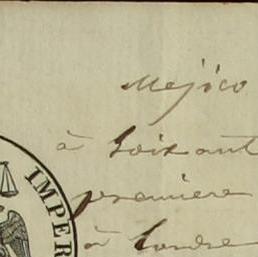 Mejico
à Soixant
première
à Londre
IMPER